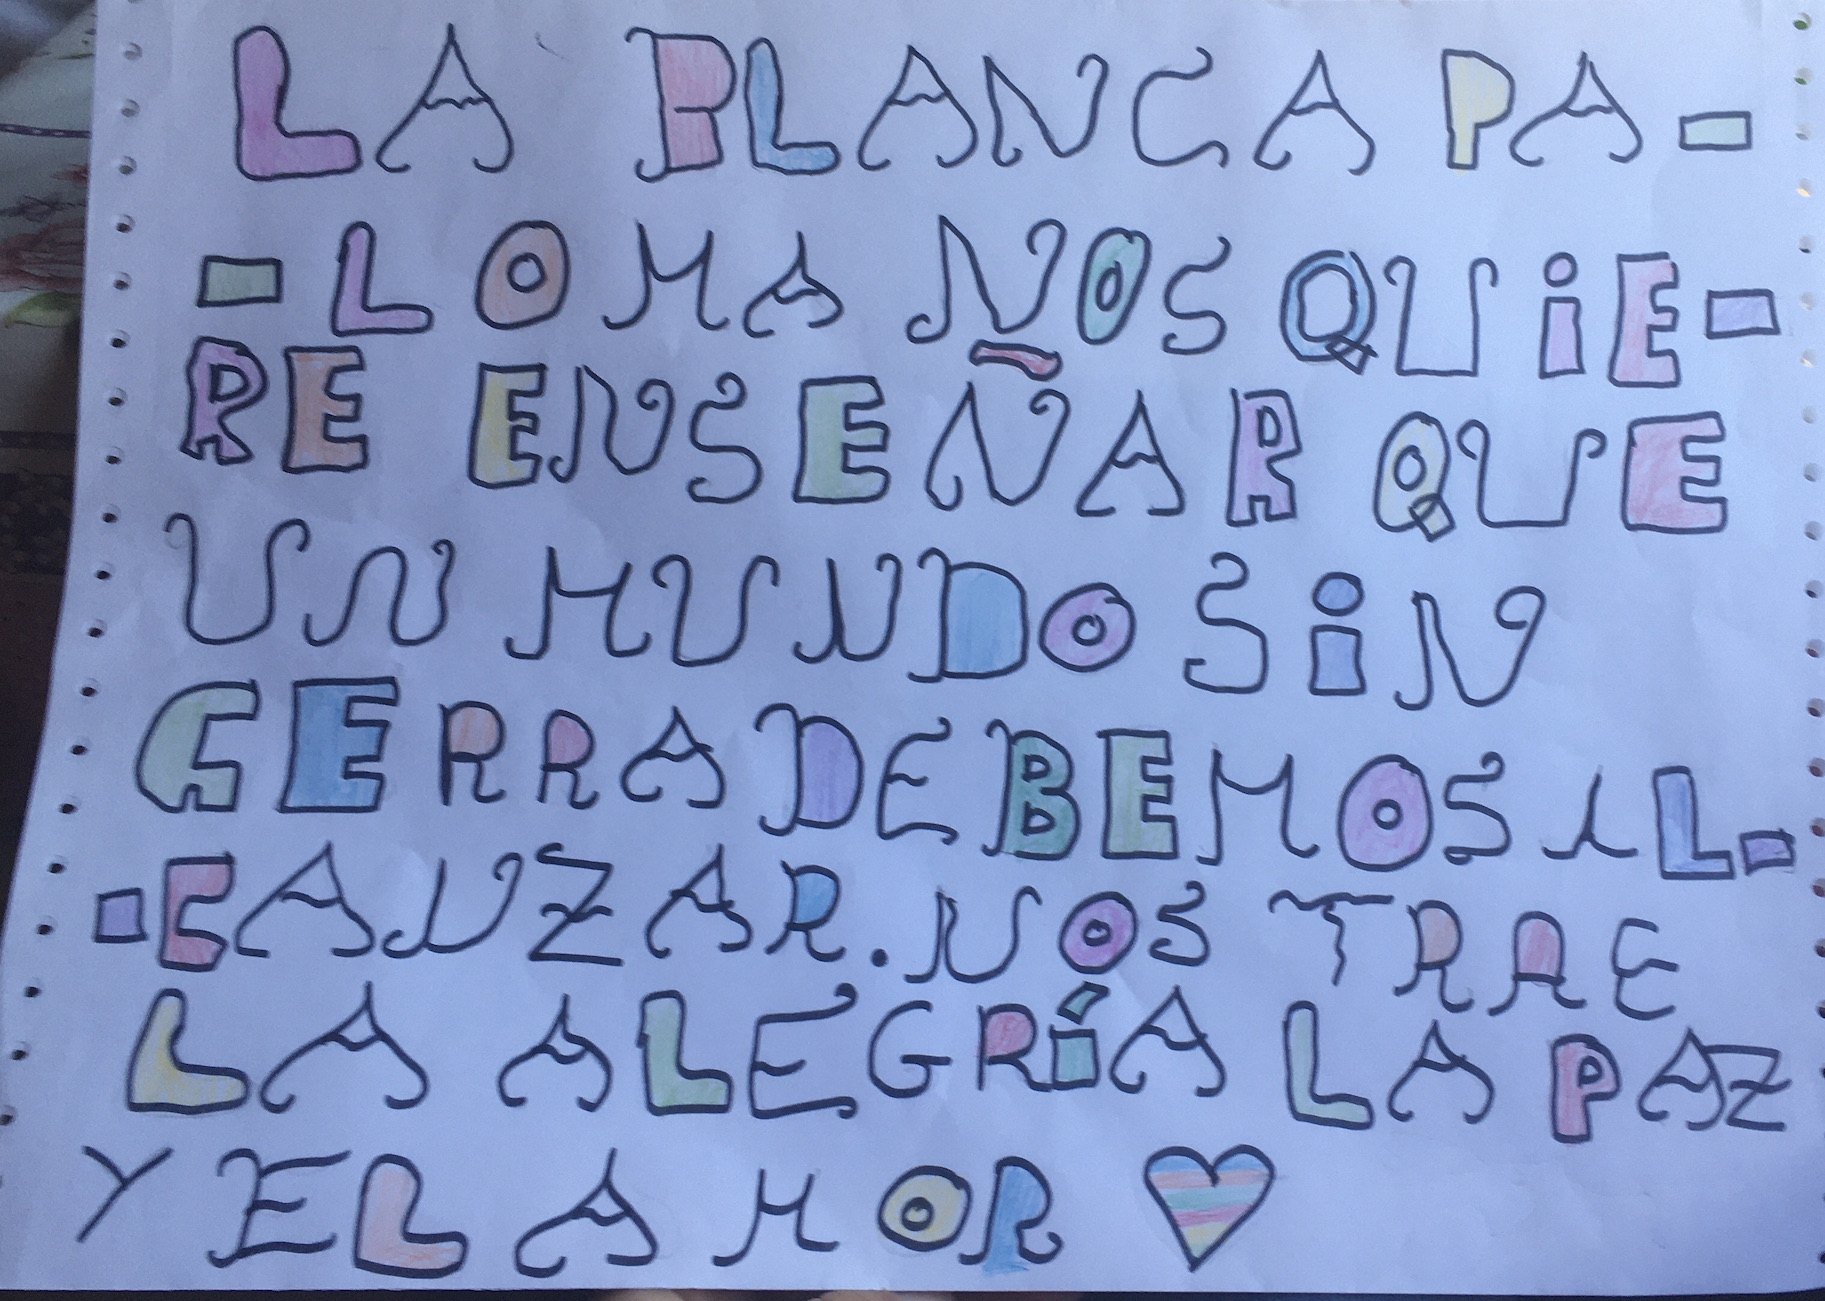 LA BLANCA PA-
-LOMA NOS QUiE-
RE ENSEÑAR QUE
UN MUNDO SiN
GERRA DEBEMOS AL-
-CANZAR. NOS TRAE
LA ALEGRÍA LA PAZ
Y EL AMOR